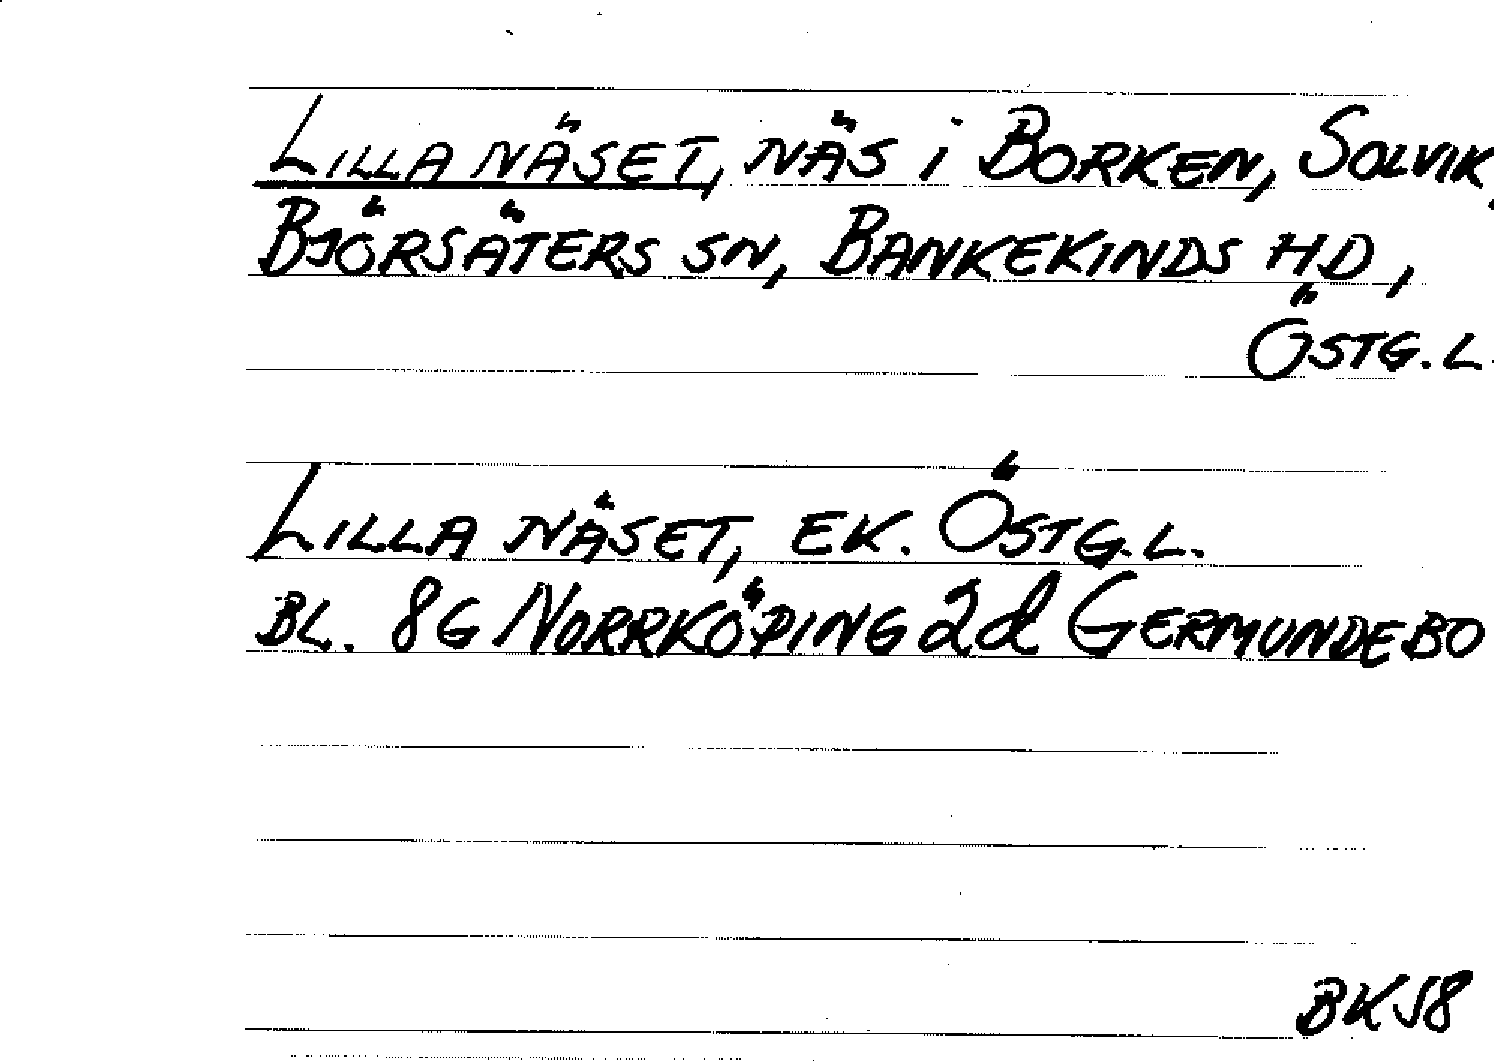 LILLA NÄSET, NÄS i BORKEN, SOLVIK,
BJÖRSÄTERS SN, BANKEKINDS HD,
ÖSTG. L.
LILLA NÄSET, EK. ÖSTG. L.
BL. 8G NORRKÖPING 2d GERMUNDEBO
BK58